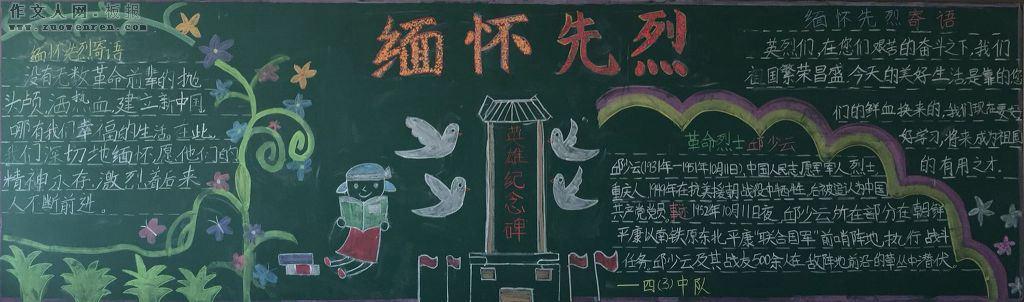 作文人网·板报
www.zuowenren.com
缅怀先烈
缅怀先烈寄语
没有无数革命前辈的抛
头颅,洒热血,建立新中国
哪有我们幸福的生活。在此,
我们深切地缅怀,愿他们的
精神永存,激烈着后来
人不断前进。
英雄纪念碑
缅怀先烈寄语
英烈们,在您们艰苦的奋斗下,我们
祖国繁荣昌盛,今天的美好生活是靠的您
们的鲜血换来的,我们现在要
好学习,将来成为祖国
的有用之才。
革命烈士邱少云
邱少云(1931年—1951年10月11日),中国人民志愿军军人,烈士,
重庆人,1949年在抗美援朝战役中牺牲,后被追认为中国
共产党党员。1952年10月11日夜,邱少云所在部分在朝鲜
平康以南铁原东北平康“联合国军”前哨阵地,执行战斗
任务,邱少云及其战友500余人在敌阵地前沿的草丛中潜伏。
——四(3)中队